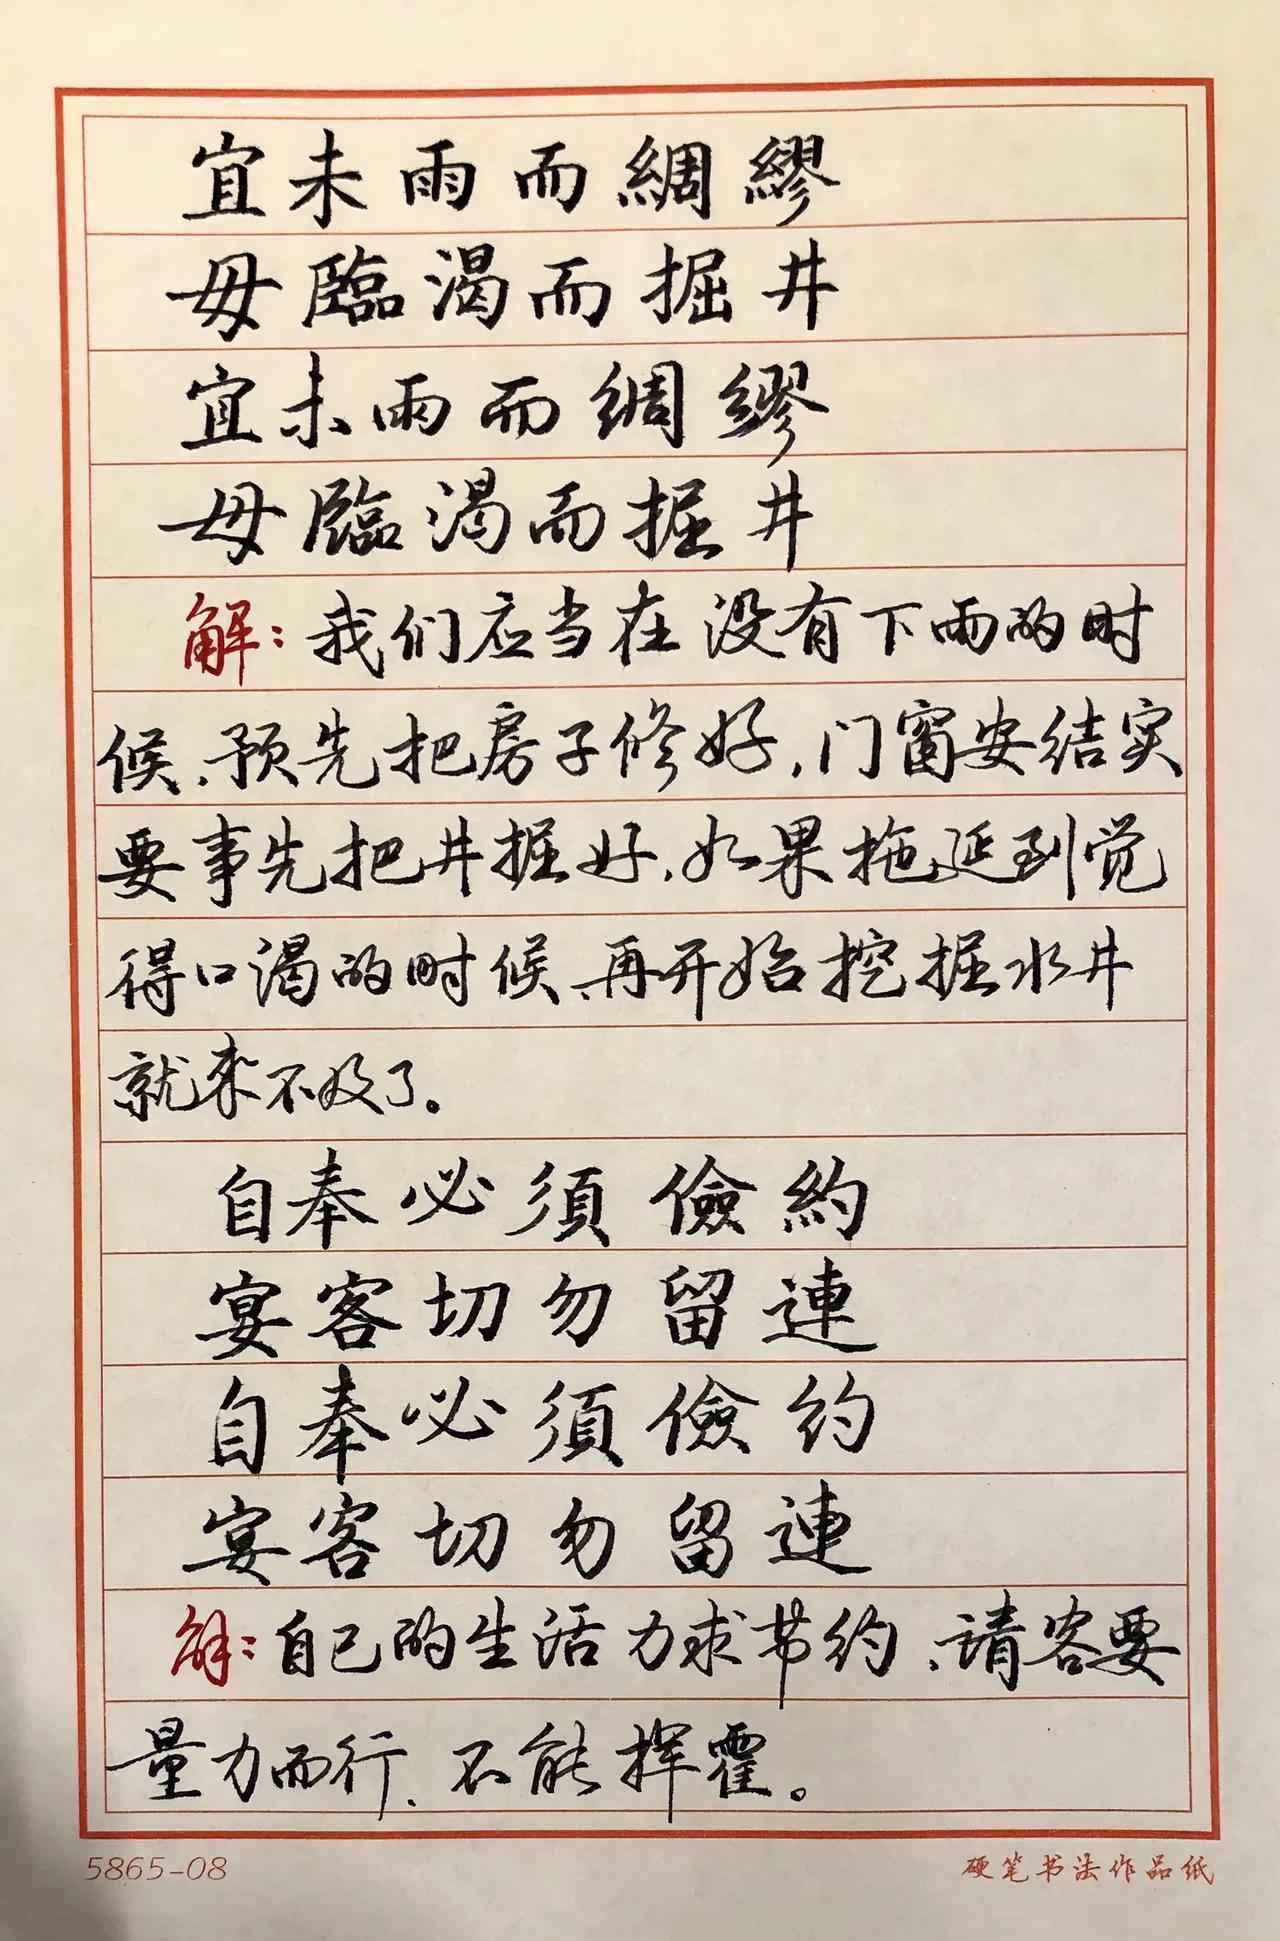 宜未雨而綢繆
毋臨渴而掘井
宜未雨而绸缪
毋臨渴而掘井
解：我们应当在没有下雨的时
候、预先把房子修好，门窗安结实
要事先把井掘好、如果拖延到觉
得口渴的时候、再开始挖掘水井
就来不及了。
自奉必須儉約
宴客切勿留連
自奉必須儉约
宴客切勿留連
解：自己的生活力求节约、请客要
量力而行、不能挥霍。
5865-08
硬笔书法作品纸